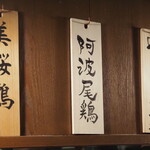 美桜鶏
阿波尾鶏